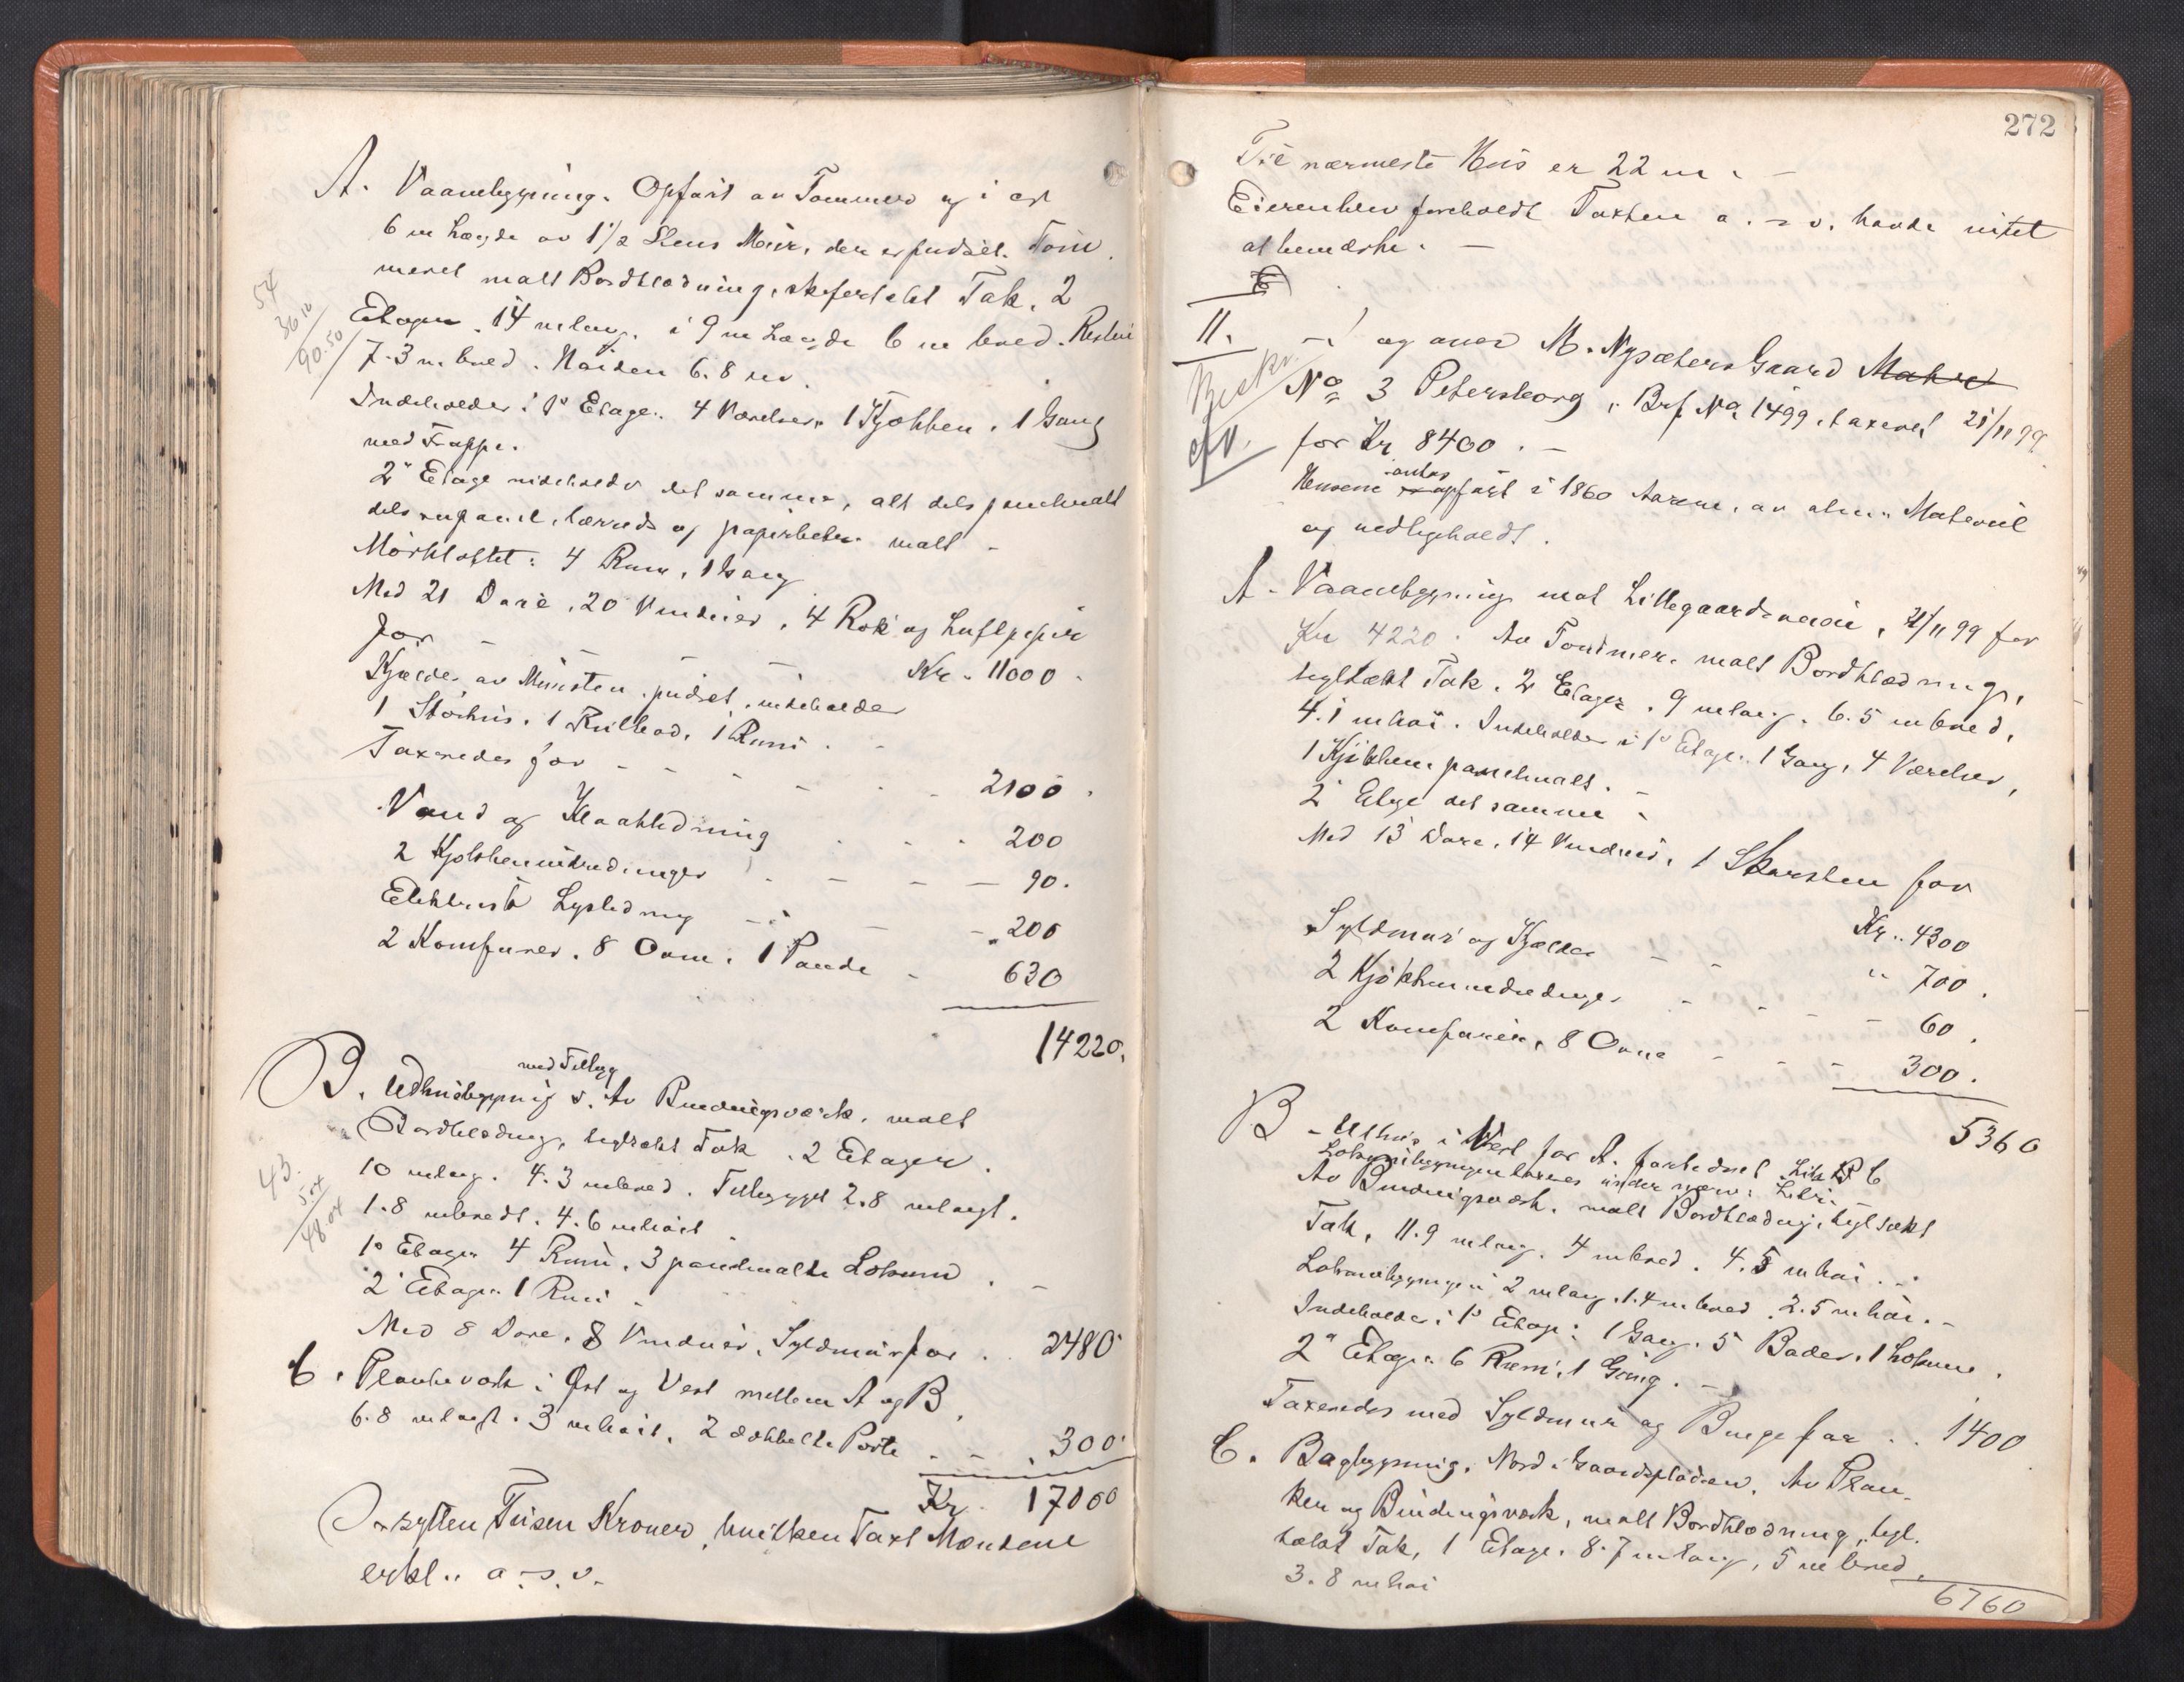 A. Vaanebygning. Opført av Tømmer og i en
6 m Længde av 1 1/2 Stens Mur, der er pudset. Tøm-
meret malt Bordklædning, skifertækt Tak, 2
Etager. 14 m lang, i 9 m Længde 6 m bred. Resten
7.3 m bred. Høiden 6.8 m.
Indeholder i 1ste Etage: 4 Værelser, 1 Kjøkken, 1 Gang
med Trappe.
2. Etage indeholder det samme, alt dels panelmalt
dels og papirbetr. malt -
Mørkloftet: 4 Rum, 1 Gang
Med 21 Døre, 20 Vinduer, 4 Røk og Luftpiper
for - - - - Kr. 11000.
Kjælder av Mursten, pudset, indeholder
1 Störhus, 1 Rulbod, 1 Rum. -
Taxeredes for - - - - 2100.
Vand og Kloakledning - - - 200
2 Kjøkkenindredninger - - - 90.
Elektrisk Lysledning - - - 200
2 Komfurer, 8 Ovne, 1 Pande - 630
14220.
54
36 10
90.50
med Tilbyg
B. Udhusbygning. Av Bindingsværk, malt
Bordklædning, teglteækt Tak. 2 Etager.
10 m lang. 4.3 m bred. Tilbygget 2.8 m langt.
1.8 m bredt. 4.6 m høit
1ste Etage: 4 Rum, 3 panelmalte Lokum. -
2. Etage: 1 Rum -
Med 8 Døre, 8 Vinduer, Syldmur for . . 2480
43.
5.04
48.04
C. Plankeværk i Øst og Vest mellem A og B,
6.8 m langt. 3 m høit, 2 dobbelte Porte - - 300
Kr. 17000
Er sytten Tusen Kroner, hvilken Taxt Mændene
erkl.. o. s. v.
272
Til nærmeste Hus er 22 m. -
Eieren blev foreholdt Taxten o. s. v. havde intet
at bemærke. -
II. -! og over M. Nysæters Gaard Mahre
No 3 Petersborg, Brf. No 1499, taxeret 21/11 99
for Kr. 8400. -
Beskr.
antas
Husene opført i 1860 Aarene, av alm. Material
og vedligeholdt.
A. Vaanebygning mot Lillegaardsveien, 21/11 99 for
Kr 4220. Av Tømmer, malt Bordklædning,
tegltækt Tak, 2 Etager. 9 m lang. 6.5 m bred,
4.1 m høi. Indeholder i 1ste Etage: 1 Gang, 4 Værelser,
1 Kjøkken, panelmalt. -
2. Etage det samme -
Med 13 Døre, 14 Vinduer, 1 Skorsten for
Kr. 4300
Syldmur og Kjælder - - " 700.
2 Kjøkkenindredninger - - - - 60.
2 Komfurer, 8 Ovne - - - 300.
5360
B - Uthus i Vest for A. forbedret Litr. C
Lokumbygningen
Av Bindingsværk, malt Bordklædning, tegltækt
Tak, 11.9 m lang. 4 m bred. 4.5 m høi. -
Lokumsbygningen 2 m lang, 1.4 m bred. 2.5 m høi. -
Indeholder i 1ste Etage: 1 Gang, 5 Boder, 1 Lokum.
2. Etage: 6 Rum, 1 Gang. -
Taxeredes med Syldmur og Binge for . . 1400
C. Bagbygning, Nord i Gaardspladsen. Av Plan-
ker og Bindingsværk, malt Bordklædning, tegl-
tækt Tak, 1 Etage. 8.7 m lang, 5 m bred,
3.8 m høi
6760